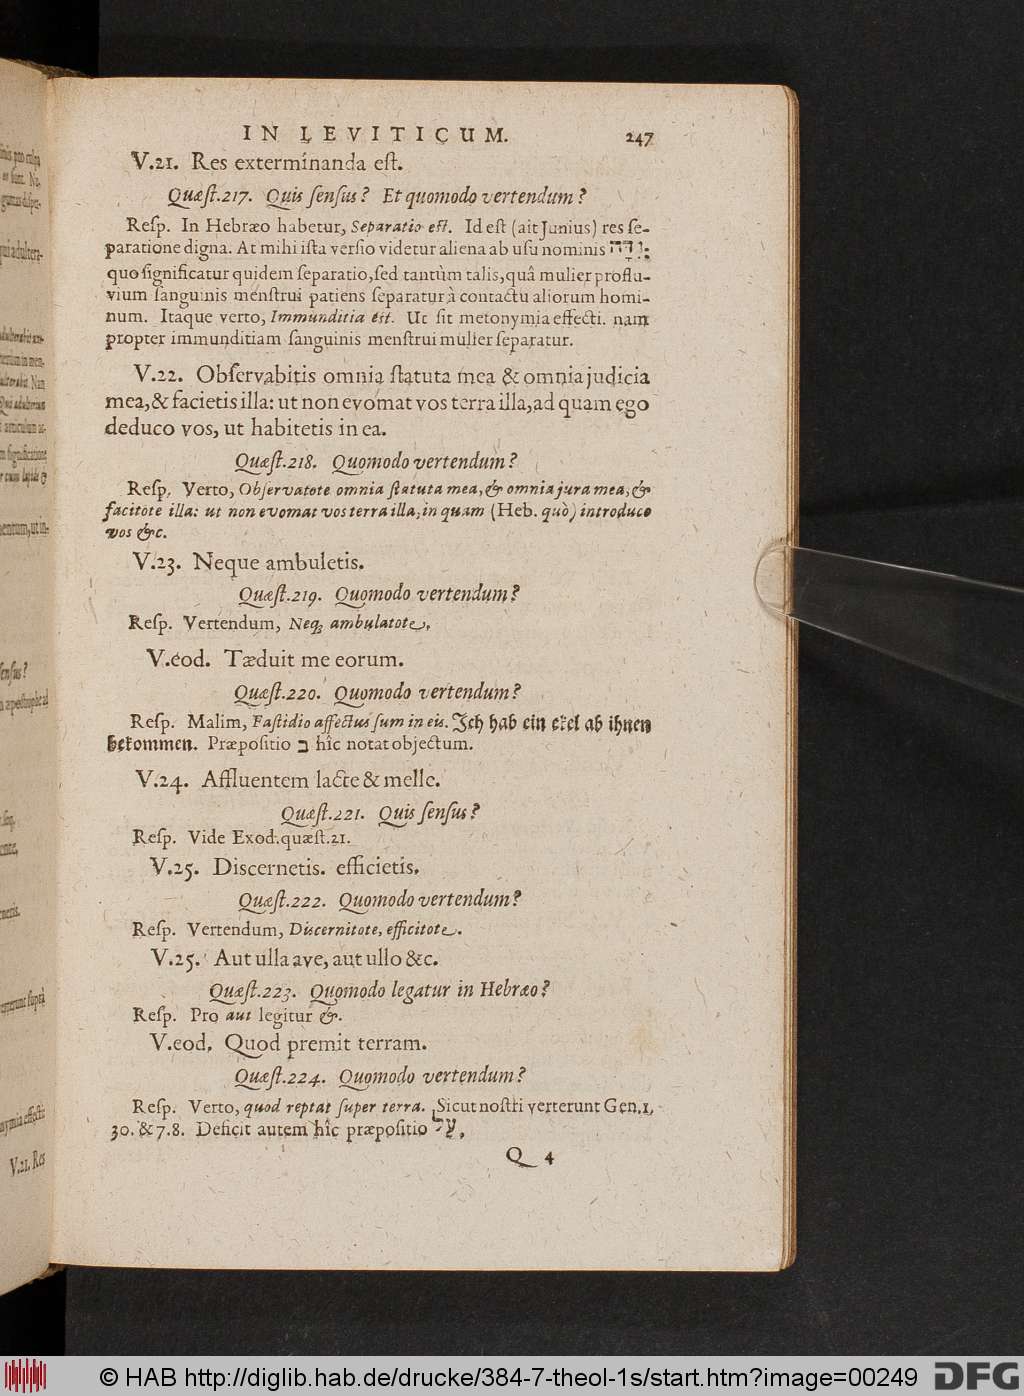 IN LEVITICUM. 247
V.21. Res exterminanda eſt.
Quæſt.217. Quis ſenſus? Et quomodo vertendum?
Reſp. In Hebræo habetur, Separatio eſt. Id eſt (ait Junius) res ſe-
paratione digna. At mihi iſta verſio videtur aliena ab uſu nominis נִדָּה:
quo ſignificatur quidem ſeparatio, ſed tantùm talis, quâ mulier proflu-
vium ſanguinis menſtrui patiens ſeparatur à contactu aliorum homi-
num. Itaque verto, Immunditia eſt. Ut ſit metonymia effecti. nam
propter immunditiam ſanguinis menſtrui mulier ſeparatur.
V.22. Obſervabitis omnia ſtatuta mea & omnia judicia
mea, & facietis illa: ut non evomat vos terra illa, ad quam ego
deduco vos, ut habitetis in ea.
Quæſt.218. Quomodo vertendum?
Reſp. Verto, Obſervatote omnia ſtatuta mea, & omnia jura mea, &
facitote illa: ut non evomat vos terra illa, in quam (Heb. quò) introduco
vos &c.
V.23. Neque ambuletis.
Quæſt.219. Quomodo vertendum?
Reſp. Vertendum, Neq; ambulatote.
V.eod. Tæduit me eorum.
Quæſt.220. Quomodo vertendum?
Reſp. Malim, Faſtidio affectus ſum in eis. Ich hab ein ekel ab ihnen
bekommen. Præpoſitio ב hîc notat objectum.
V.24. Affluentem lacte & melle.
Quæſt.221. Quis ſenſus?
Reſp. Vide Exod. quæſt.21.
V.25. Discernetis. efficietis.
Quæſt.222. Quomodo vertendum?
Reſp. Vertendum, Discernitote, efficitote.
V.25. Aut ulla ave, aut ullo &c.
Quæſt.223. Quomodo legatur in Hebræo?
Reſp. Pro aut legitur &.
V.eod. Quod premit terram.
Quæſt.224. Quomodo vertendum?
Reſp. Verto, quod reptat ſuper terra. Sicut noſtri verterunt Gen.1,
30. & 7.8. Deficit autem hîc præpoſitio עַל.
Q 4
V.21. Res
© HAB http://diglib.hab.de/drucke/384-7-theol-1s/start.htm?image=00249
DFG